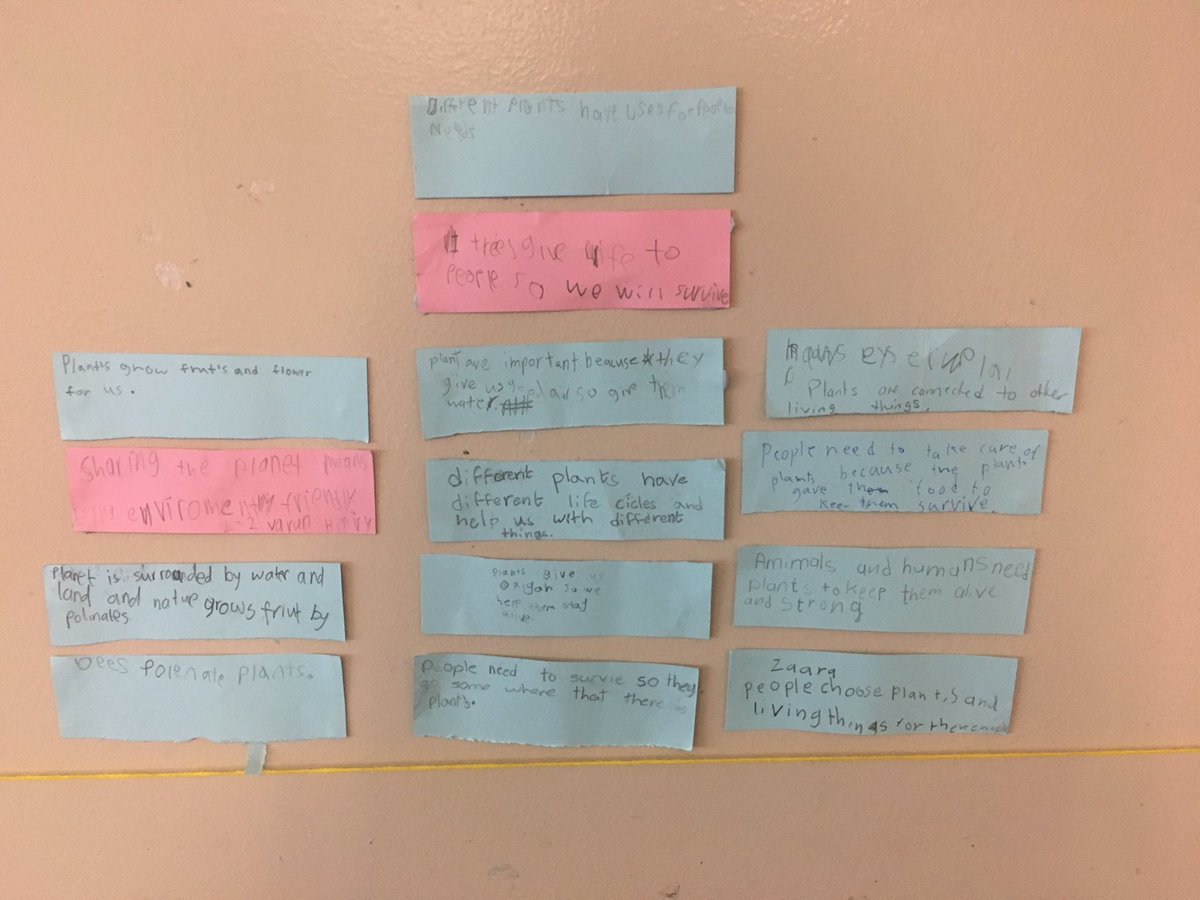 Different Plants have uses for
Needs
trees give life to
people so we will survive
Plant's grow frut's and flower
for us.
Sharing the planet means
enviromently friendly
Planet is surrounded by water and
land and natue grows friut by
polinates
bees polenate plants.
plant are important because they
give us good air so give them
water.
different plants have
different life cicles and
help us with different
things.
Plants give us
oxigan so we
help them stay
alive.
people need to survie so they
go some where that there is
plants.
Plants are connected to other
living things.
People need to take care of
plants because the plants
gave them food to
keep them survive.
Amimals and humans need
plants to keep them alive
and strong
Zaara
people choose plants and
living things for